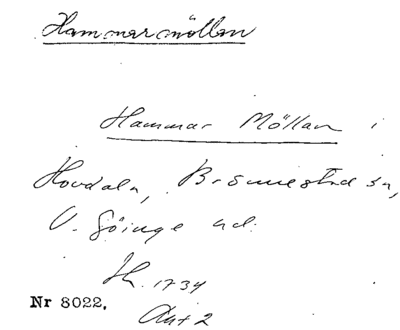 Hammarmöllan
Hammar Möllan i
Hovdala, Brönnestad sn,
V. Göinge hd.
Jb. 1734
Nr 8022.
Avt 2